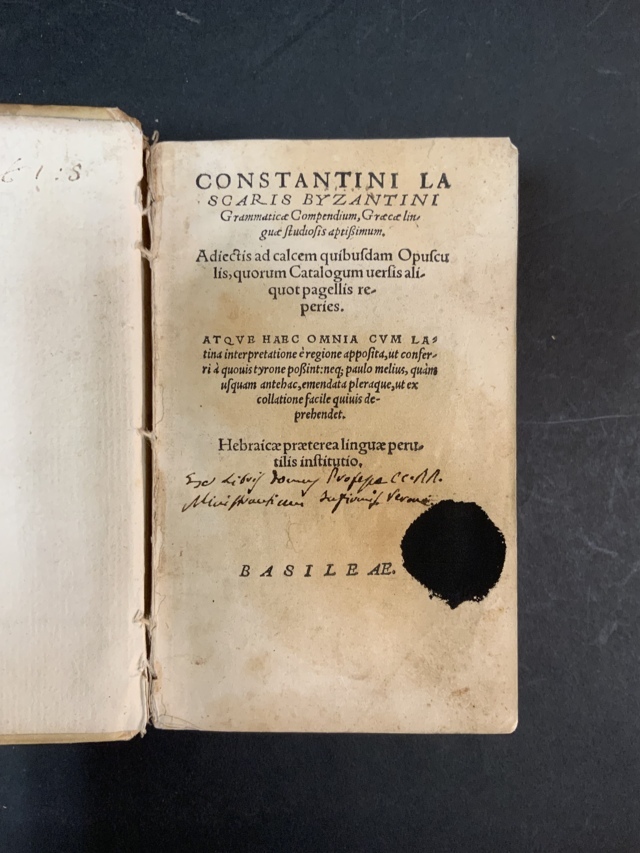 CONSTANTINI LA
SCARIS BYZANTINI
Grammaticæ Compendium, Græcæ lin-
guæ ſtudioſis aptißimum.
Adiectis ad calcem quibuſdam Opuſcu
lis, quorum Catalogum uerſis ali-
quot pagellis re-
peries.
ATQVE HAEC OMNIA CVM LA-
tina interpretatione è regione appoſita, ut confer-
ri à quouis tyrone poßint: neq; paulo melius, quàm
uſquam antehac, emendata pleraque, ut ex
collatione facile quiuis de-
prehendet.
Hebraicæ præterea linguæ peru-
tilis inſtitutio.
Ex Libris Domus Profeſſæ CC.RR.
Miniſtrantium Infirmis Veronæ
BASILEAE.